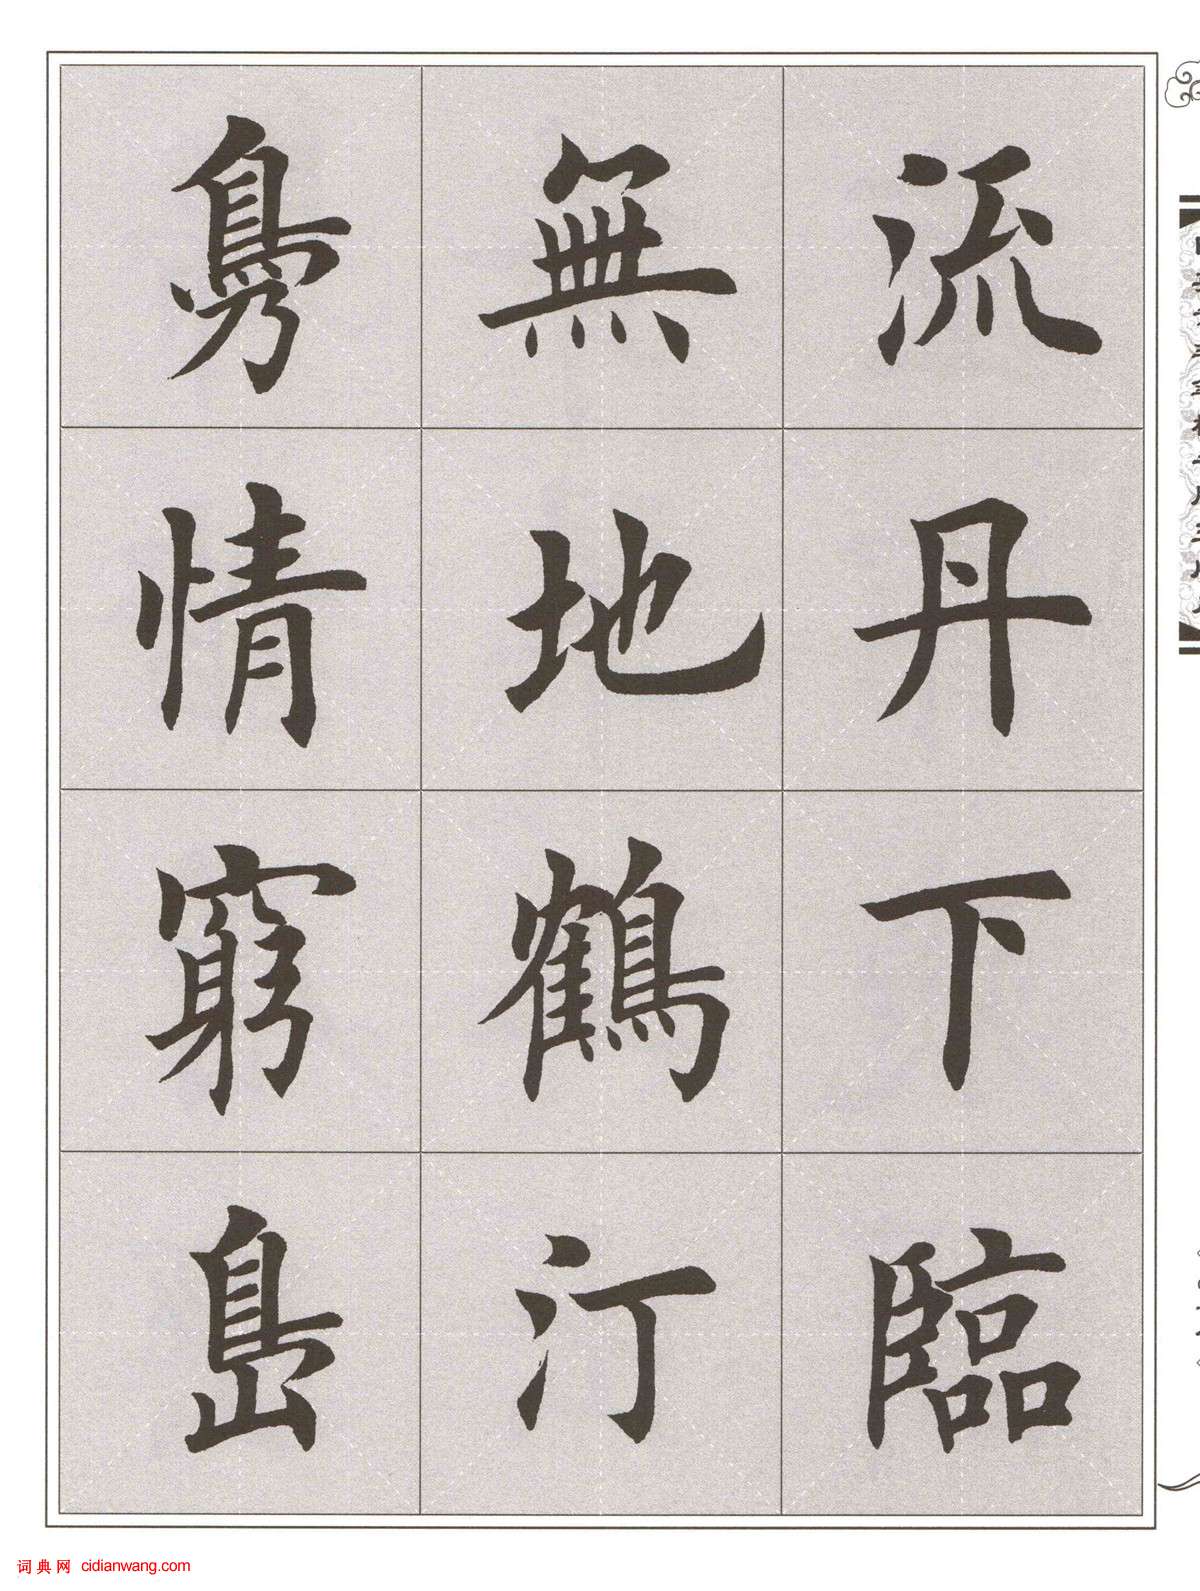 流丹下臨
無地鶴汀
鳧情窮島
词典网 cidianwang.com